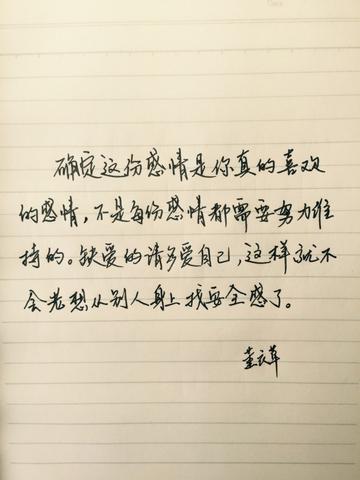 确定这份感情是你真的喜欢
的感情，不是每份感情都需要努力维
持的。缺爱的请多爱自己，这样就不
会老想从别人身上找安全感了。